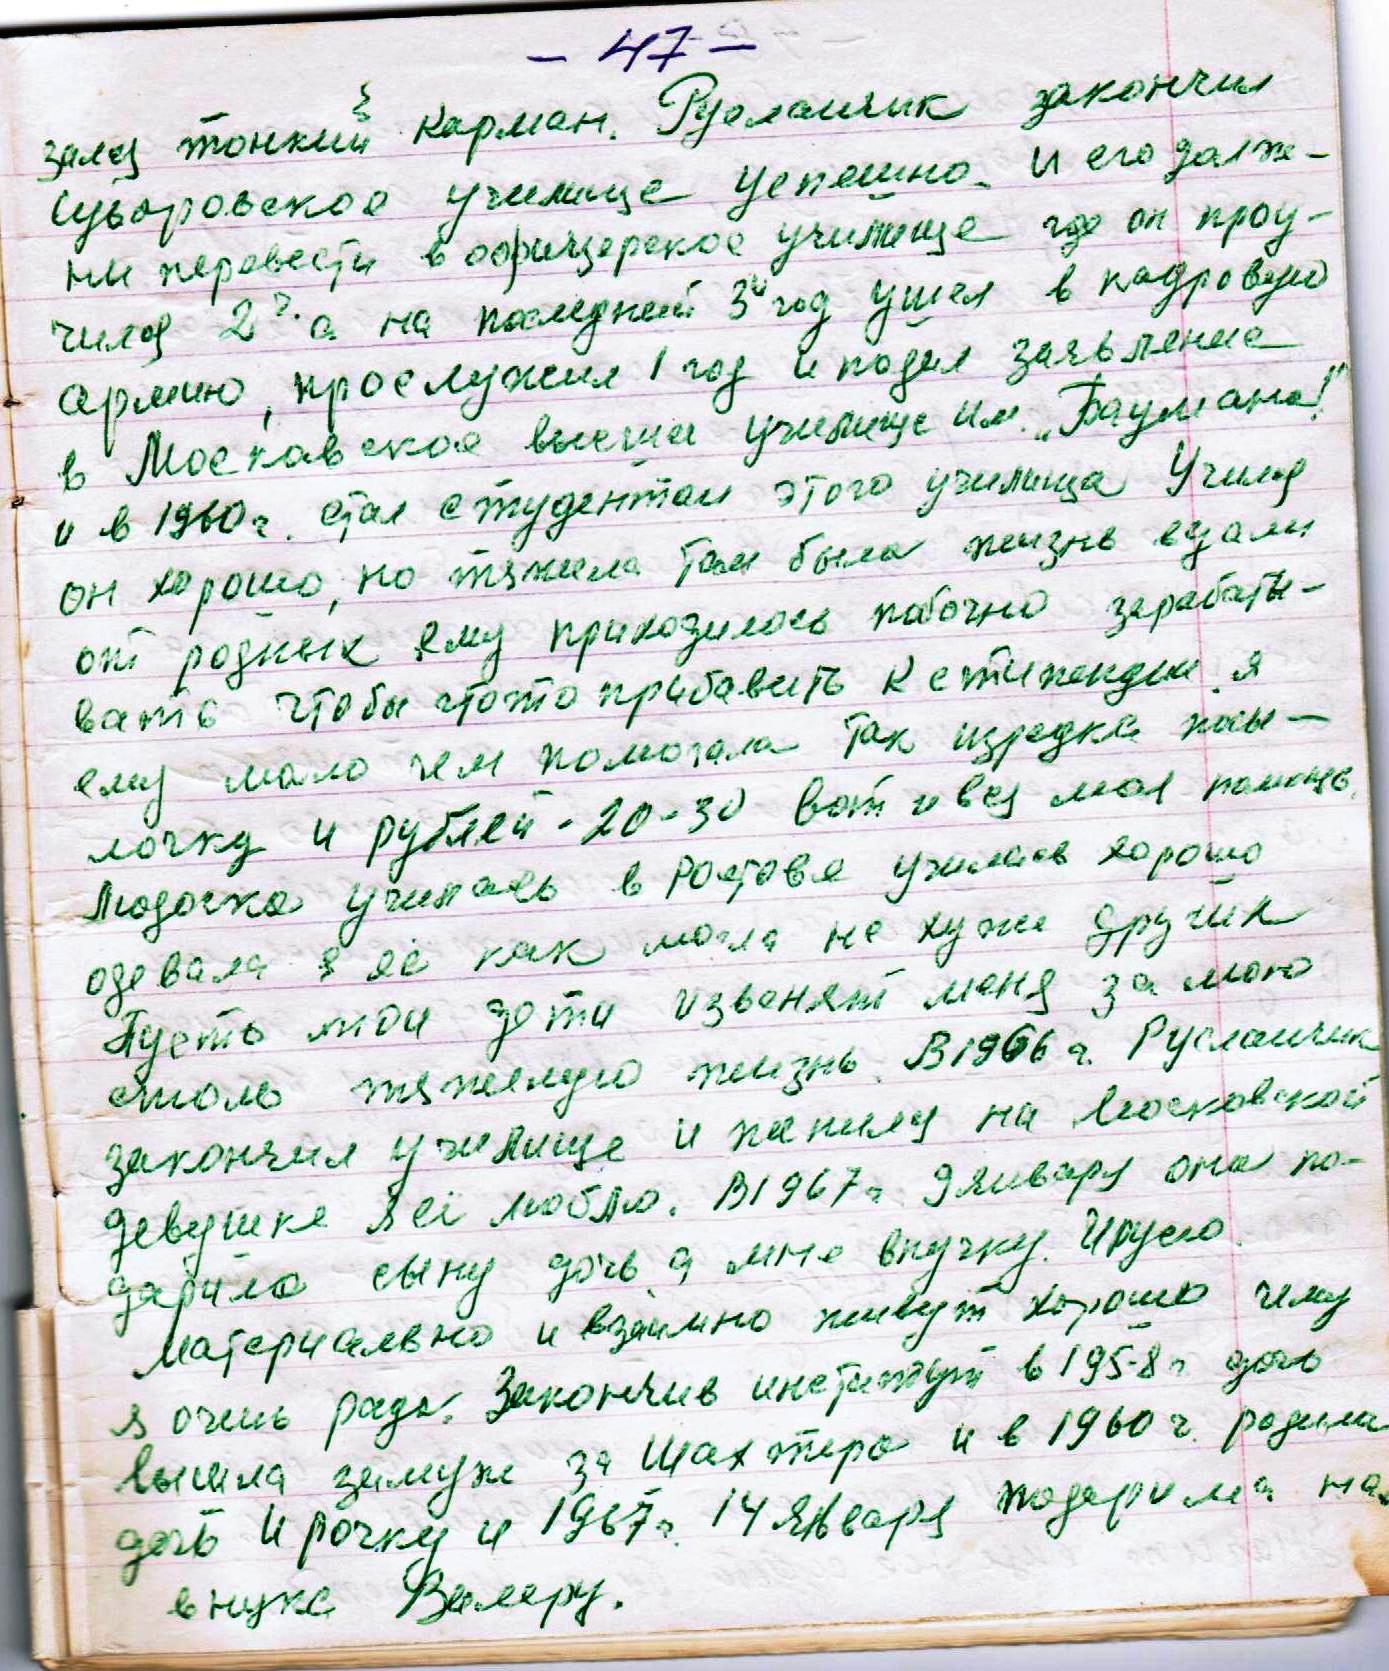 - 47 -
залез тонкий карман. Русланчик закончил
Суворовское училище успешно. и его долж-
ны перевести в офицерское училище где он проу-
чился 2 г. а на последней 3й год ушел в кадровую
армию, прослужил 1 год и подал заявление
в Московское высше училище им. „Баумана!"
и в 1960 г. стал студентом этого училища Учился
он хорошо, но тяжела там была жизнь вдали
от родных ему приходилось побочно зарабаты-
вать чтобы чтото прибавить к стипендии. я
ему мало чем помогала так изредка посы-
лочку и рублей - 20-30 вот и вся моя помощь.
Людочка училась в Ростове училась хорошо
одевала я её как могла не хуже других
Пусть мои дети извенят меня за мою
столь тяжелую жизнь. В 1966 г. Русланчик
закончил училище и женился на Московской
девушке я её люблю. В 1967 г. 9 январу она по-
дарила сыну дочь а мне внучку. Ирусю.
Материально и взаимно живут хорошо чему
я очень рада. Закончив институт в 1958 г. дочь
вышла замуж за шахтера и в 1960 г. родила
дочь Ирочку и 1967 г. 14 января подарила на
внука Валеру.